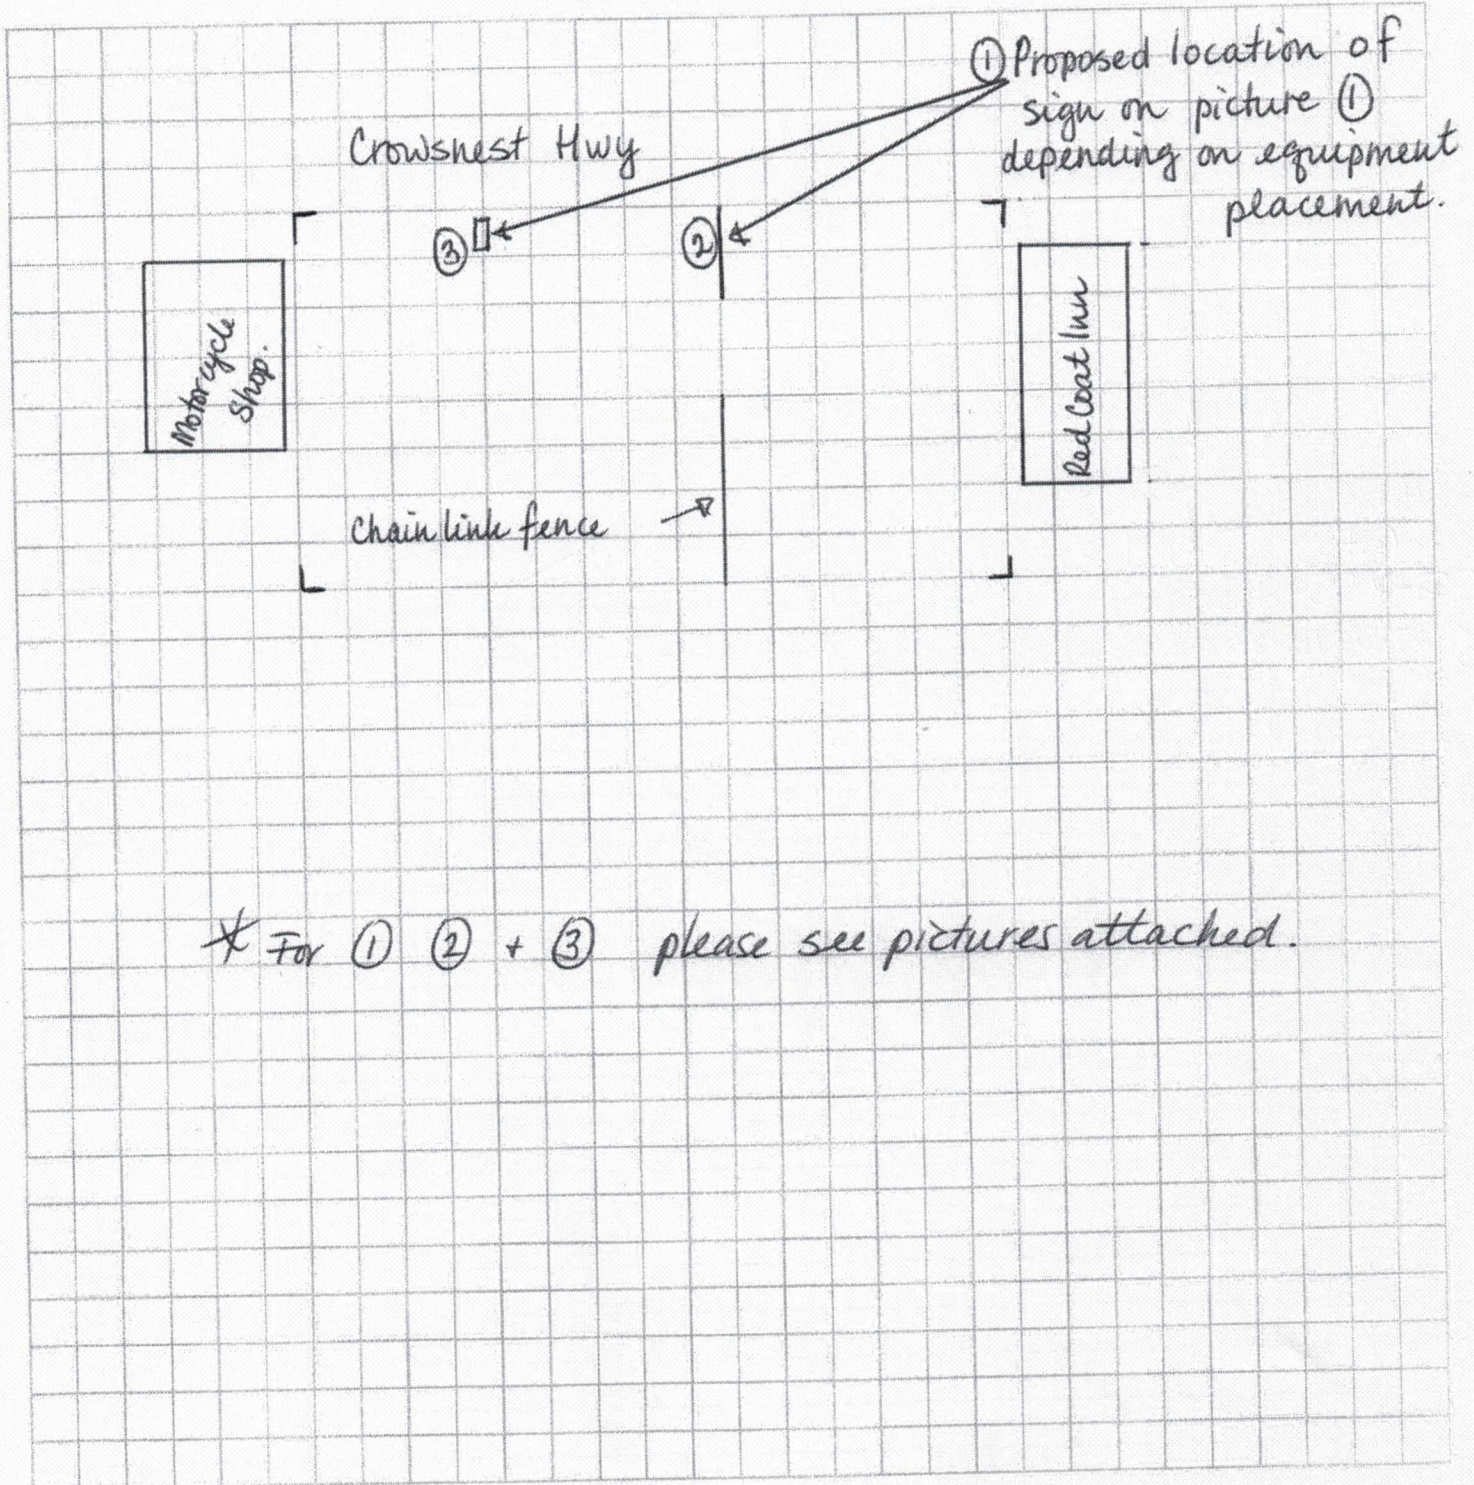 ① Proposed location of
sign on picture ①
depending on equipment
placement.
Crowsnest Hwy
③
②
Motorcycle
Shop.
Red Coat Inn
Chain link fence
* For ① ② + ③ please see pictures attached.